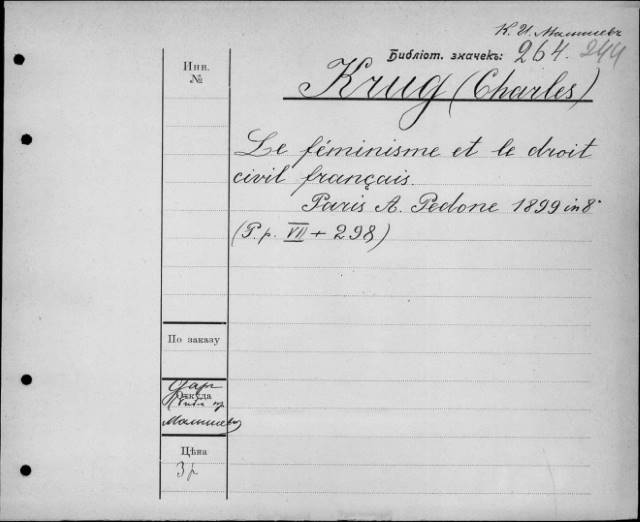 К. И. Малышевъ
Библіот. значекъ: 264. 244
Инв.
№
Krug (Charles)
Le féminisme et le droit
civil français.
Paris A. Pedone 1899 in 8°
(P.p. VII + 298)
По заказу
Откуда
Даръ
Малышева
Цѣна
3 р